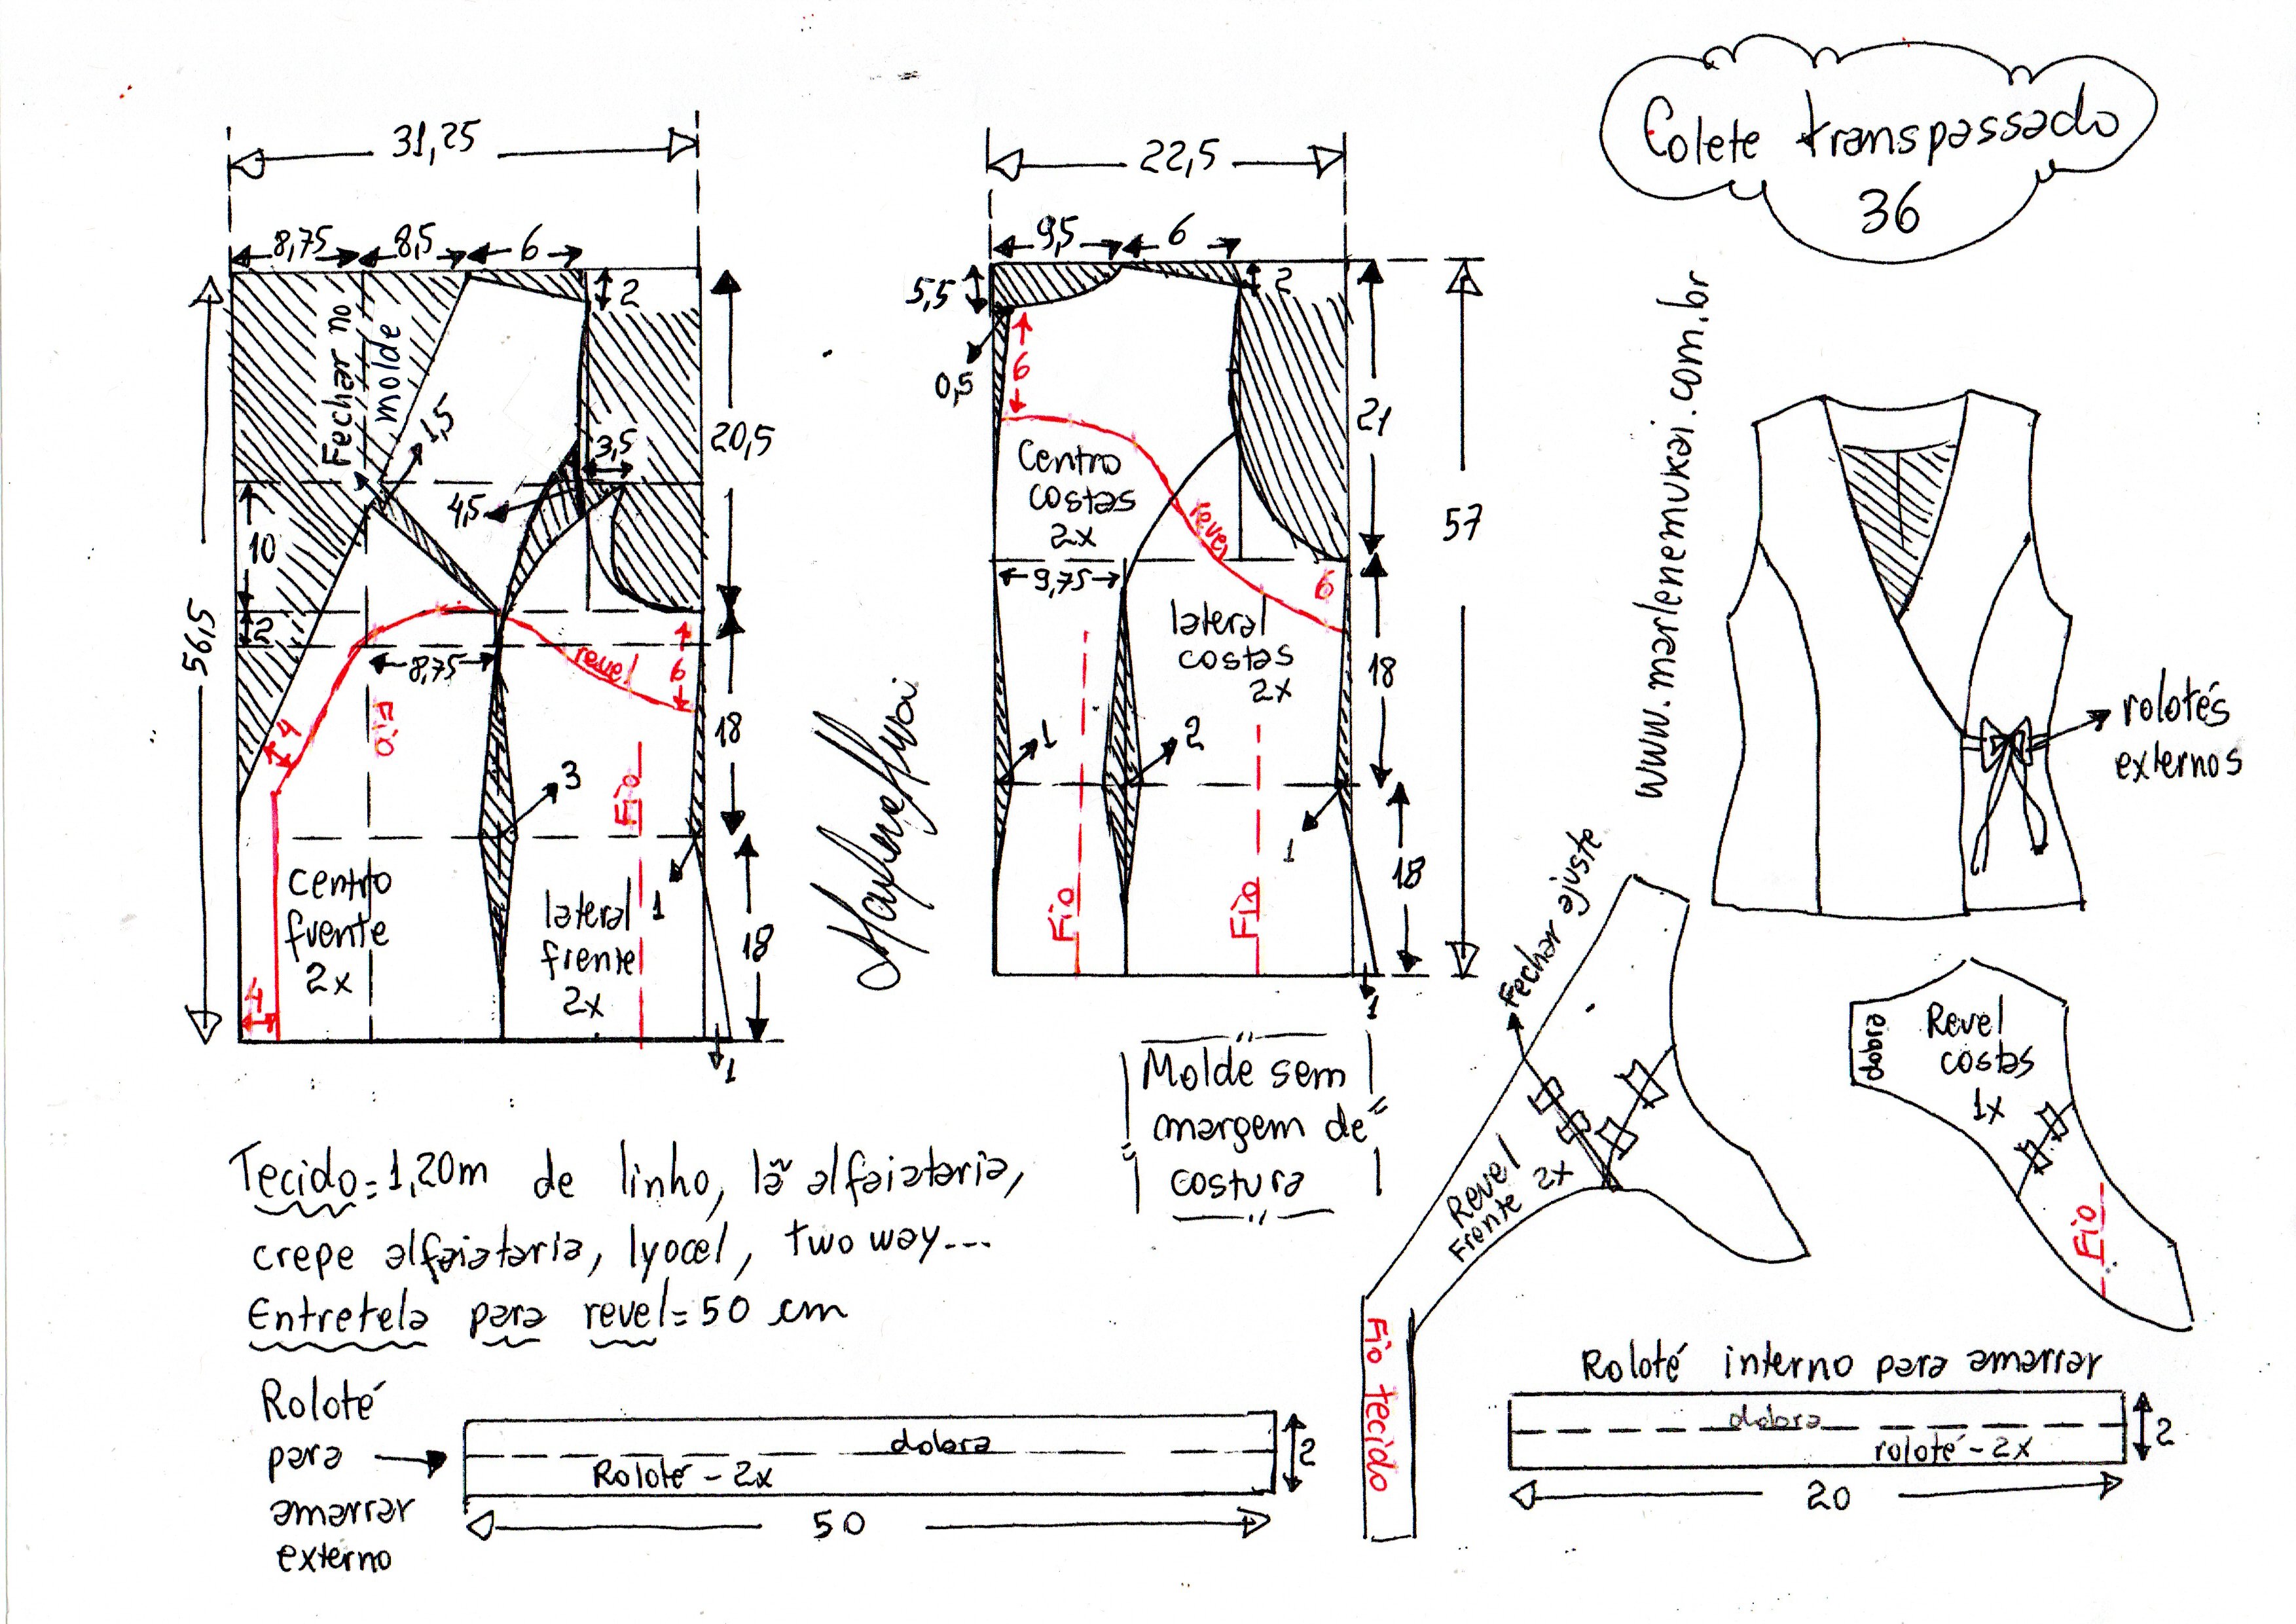 Colete transpassado
36
www.marlenemukai.com.br
31,25
8,75
8,5
6
2
Fechar no
molde
1,5
3,5
4,5
20,5
10
2
56,5
8,75
revel
6
4
Fio
18
3
Fio
centro
frente
2x
lateral
frente
2x
1
18
4
1
22,5
9,5
6
5,5
2
0,5
6
21
Centro
costas
2x
revel
57
9,75
6
lateral
costas
2x
18
1
2
1
Fio
Fio
18
1
Marlene Mukai
rolotés
externos
Molde sem
margem de
costura
Fechar ajuste
Revel
Frente 2x
Fio tecido
dobra
Revel
costas
1x
Fio
Tecido=1,20m de linho, lã alfaiataria,
crepe alfaiataria, lyocel, two way---
Entretela para revel=50 cm
Roloté
para
amarrar
externo
dobra
Roloté - 2x
2
50
Roloté interno para amarrar
dobra
roloté - 2x
2
20